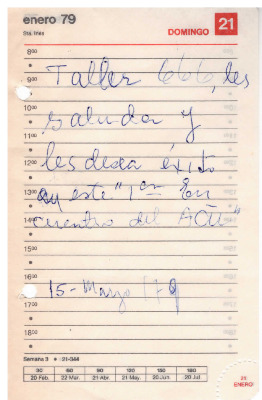 enero 79
DOMINGO 21
Sta. Inés
8⁰⁰
9⁰⁰ Taller 666, les
10⁰⁰
11⁰⁰ saluda y
12⁰⁰ les desea éxito
13⁰⁰ en este "1er En
14⁰⁰ cuentro del
15⁰⁰
16⁰⁰ 15-Marzo 179
17⁰⁰
18⁰⁰
Semana 3 • 21-344
30 60 90 120 150 180
20 Feb. 22 Mar. 21 Abr. 21 May. 20 Jun. 20 Jul.
21
ENERO